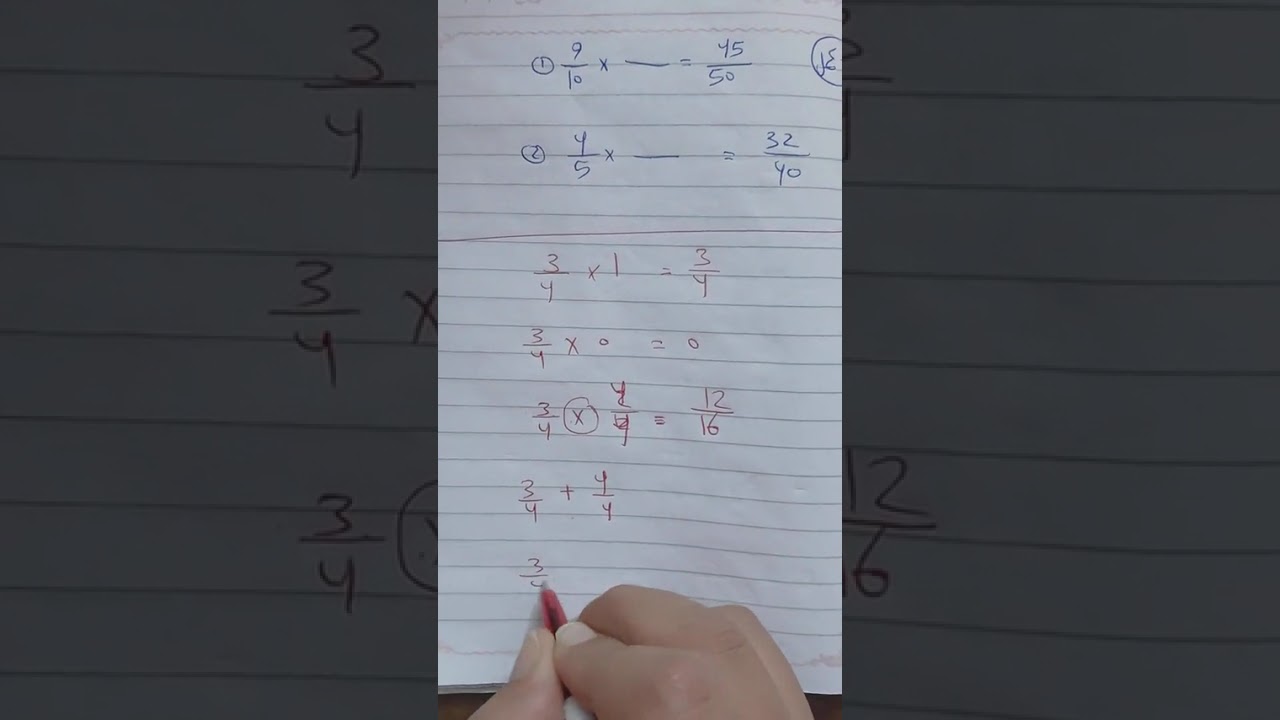 ① 9/10 × — = 45/50
② 4/5 × — = 32/40
3/4 × 1 = 3/4
3/4 × 0 = 0
3/4 × 4/4 = 12/16
3/4 + 4/4
3/4